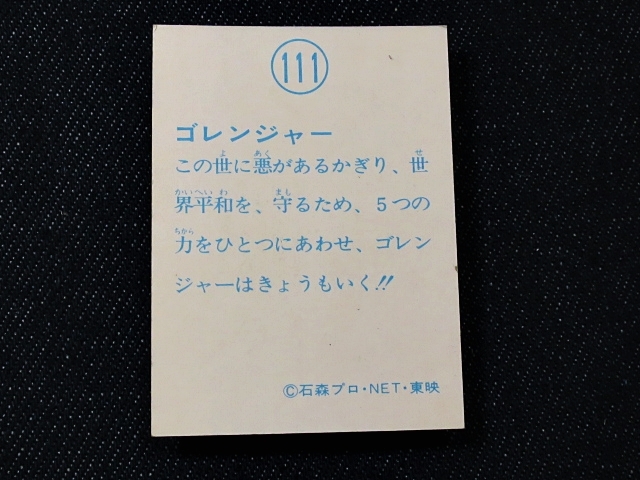 111
ゴレンジャー
この世に悪があるかぎり、世
界平和を、守るため、5つの
力をひとつにあわせ、ゴレン
ジャーはきょうもいく!!
©石森プロ・NET・東映